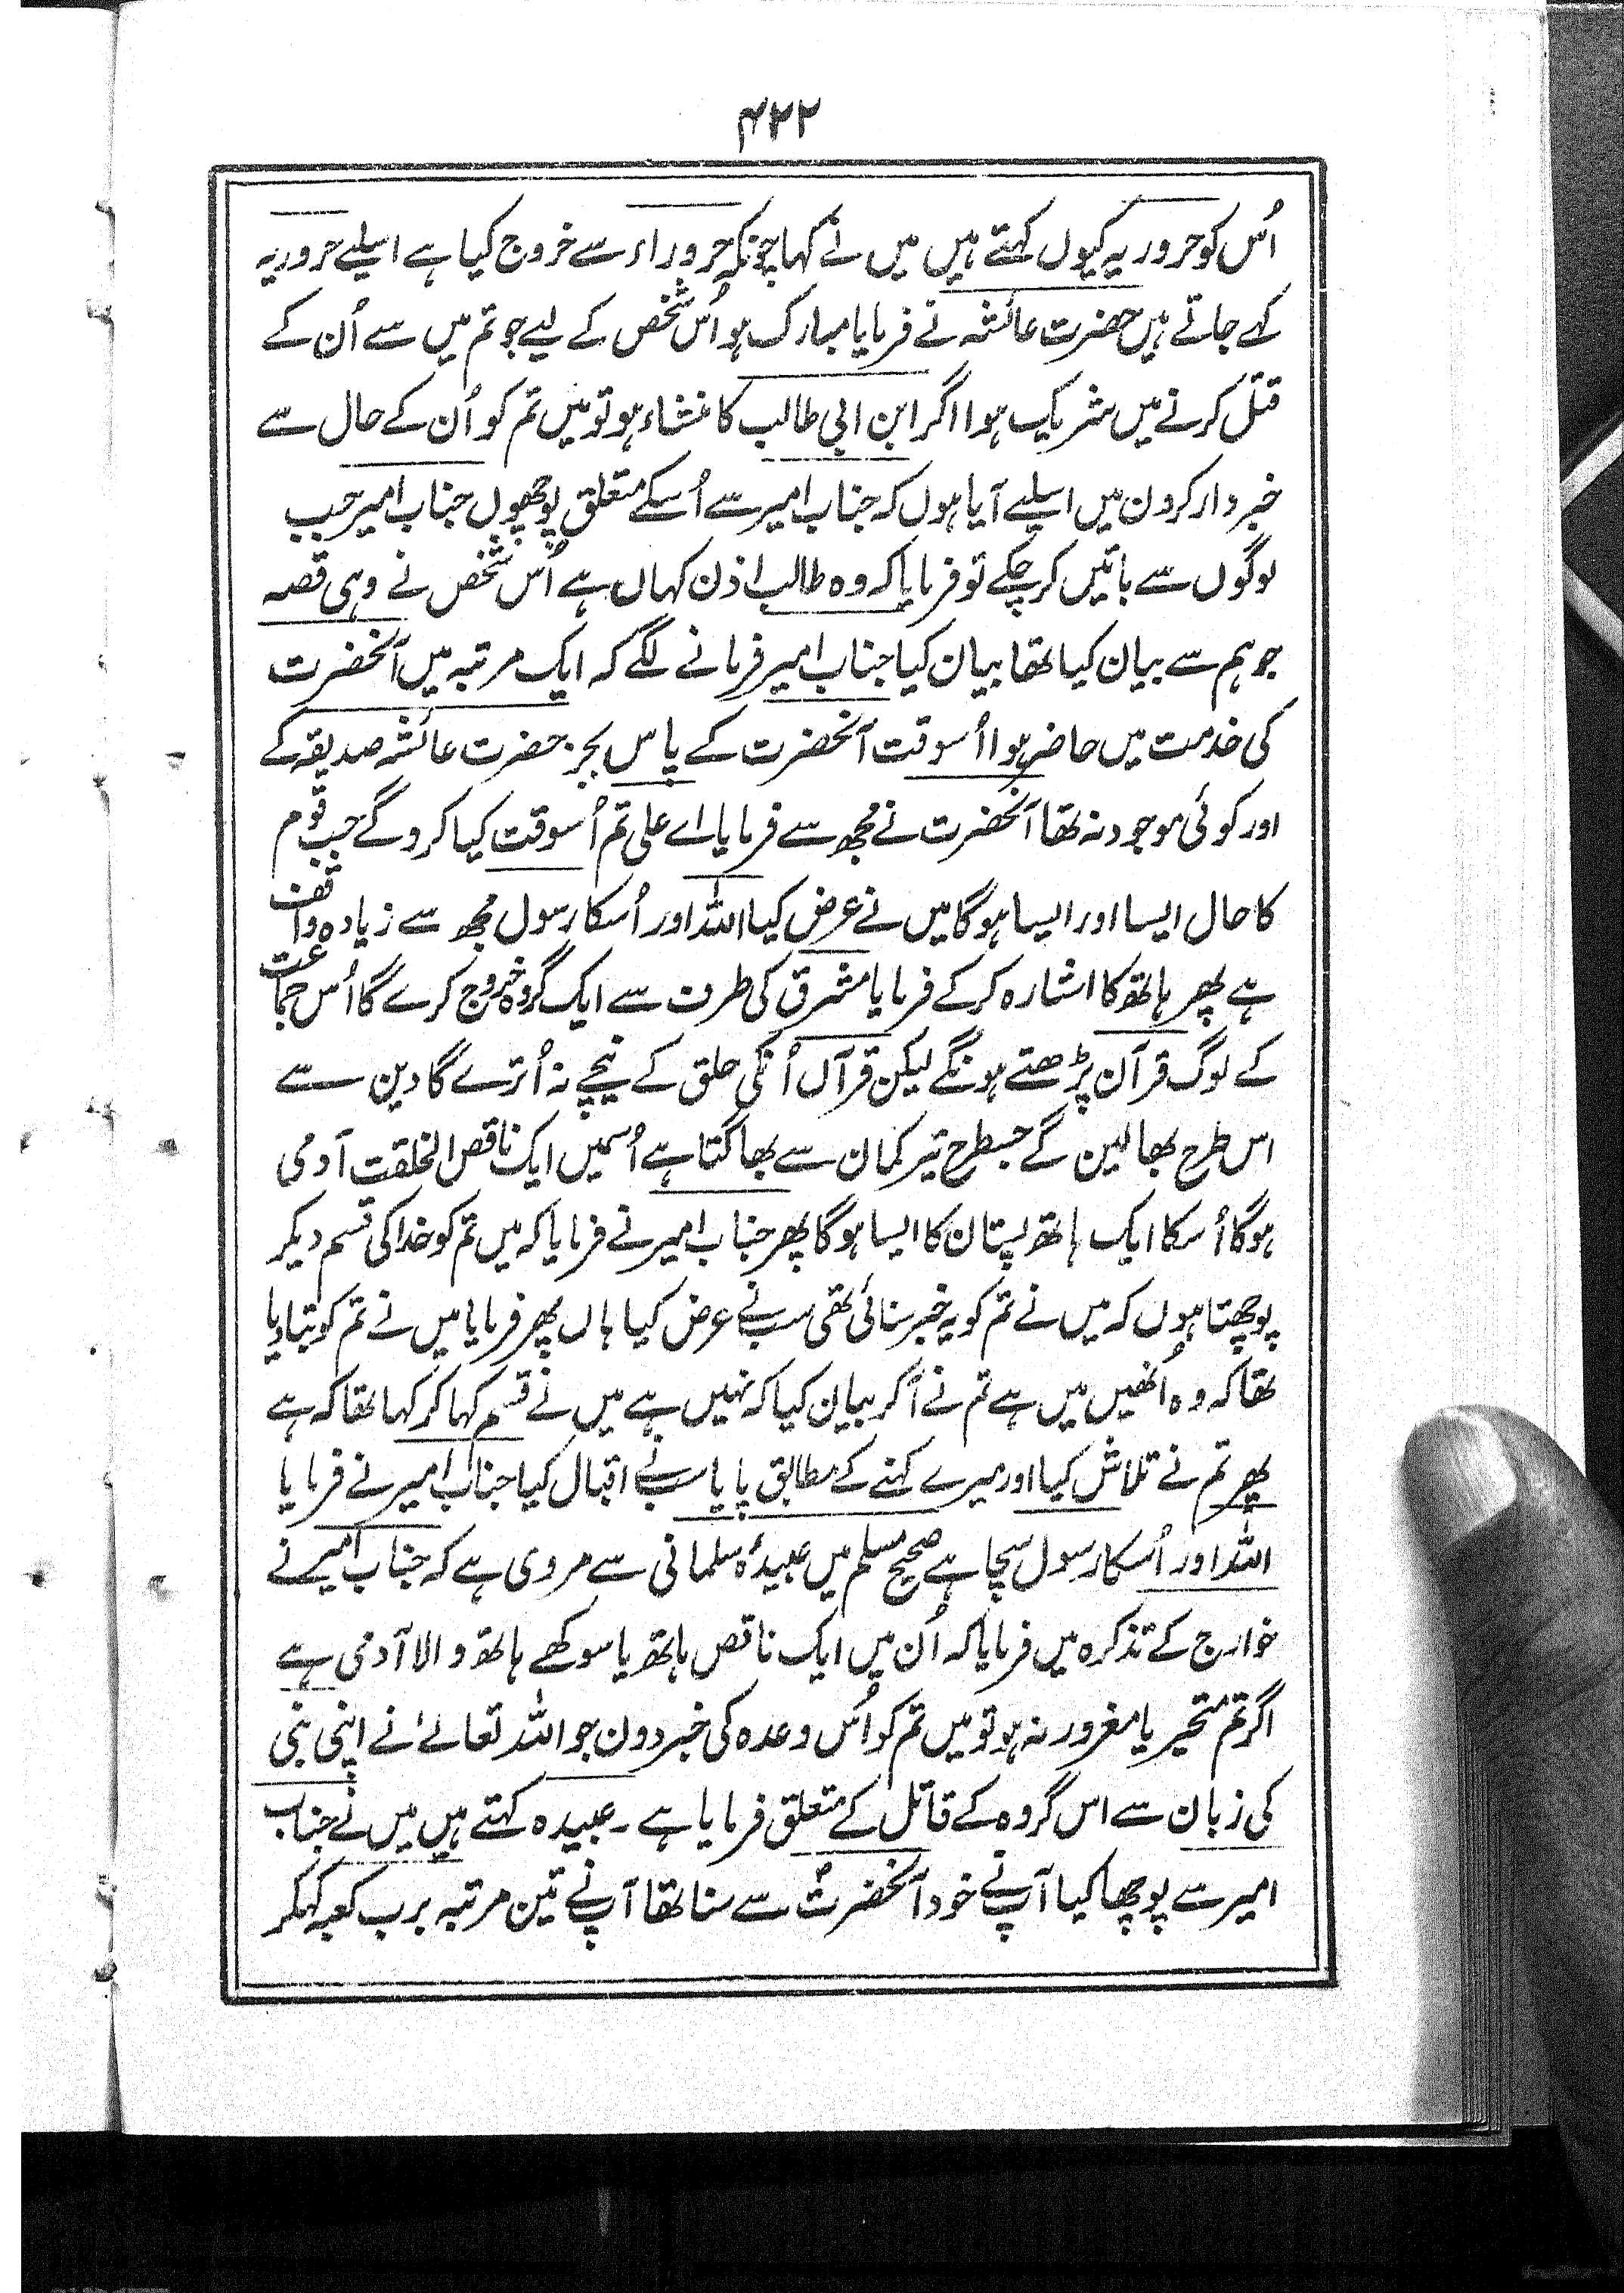 ۴۲۲
اُس کو حروریہ کیوں کہتے ہیں میں نے کہا چونکہ حروراء سے خروج کیا ہے اسلیے حروریہ
کہے جاتے ہیں حضرت عائشہ نے فرمایا مبارک ہو اُس شخص کے لیے جو تم میں سے اُن کے
قتل کرنے میں شریک ہوا اگر ابن ابی طالب کا منشاء ہو تو میں تم کو اُن کے حال سے
خبردار کردن میں اسلیے آیا ہوں کہ جناب امیر سے اُسکے متعلق پوچھوں جناب امیر جب
لوگوں سے باتیں کر چکے تو فرمایا کہ وہ طالب اذن کہاں ہے اُس شخص نے وہی قصہ
جو ہم سے بیان کیا تھا بیان کیا جناب امیر فرمانے لگے کہ ایک مرتبہ میں آنحضرت
کی خدمت میں حاضر ہوا اُسوقت آنحضرت کے پاس بجز حضرت عائشہ صدیقہ کے
اور کوئی موجود نہ تھا آنحضرت نے مجھ سے فرمایا اے علی تم اُسوقت کیا کروگے جب قوم
کا حال ایسا اور ایسا ہوگا میں نے عرض کیا اللہ اور اُسکا رسول مجھ سے زیادہ واقف
ہے پھر ہاتھ کا اشارہ کرکے فرمایا مشرق کی طرف سے ایک گروہ خروج کرے گا اُس جماعت
کے لوگ قرآن پڑھتے ہونگے لیکن قرآں اُنکی حلق کے نیچے نہ اُترے گا دین سے
اس طرح بھاگین گے جسطرح تیر کمان سے بھاگتا ہے اُسمیں ایک ناقص الخلقت آدمی
ہوگا اُسکا ایک ہاتھ پستان کا ایسا ہوگا پھر جناب امیر نے فرمایا کہ میں تم کو خدا کی قسم دیکر
پوچھتا ہوں کہ میں نے تم کو یہ خبر سنائی تھی سب نے عرض کیا ہاں پھر فرمایا میں نے تم کو بتا دیا
تھا کہ وہ اُنھیں میں ہے تم نے آکر بیان کیا کہ نہیں ہے میں نے قسم کھا کر کہا تھا کہ ہے
پھر تم نے تلاش کیا اور میرے کہنے کے مطابق پایا سب نے اقبال کیا جناب امیر نے فرمایا
اللہ اور اُسکا رسول سچا ہے صحیح مسلم میں عبیدۂ سلمانی سے مروی ہے کہ جناب امیر نے
خوارج کے تذکرہ میں فرمایا کہ اُن میں ایک ناقص ہاتھ یا سوکھے ہاتھ والا آدمی ہے
اگر تم متحیر یا مغرور نہ ہو تو میں تم کو اُس وعدہ کی خبر دون جو اللہ تعالےٰ نے اپنی نبی
کی زبان سے اس گروہ کے قاتل کے متعلق فرمایا ہے ۔ عبیدہ کہتے ہیں میں نے جناب
امیر سے پوچھا کیا آپ نے خود آنحضرت سے سنا تھا آپ نے تین مرتبہ برب کعبہ کہکر